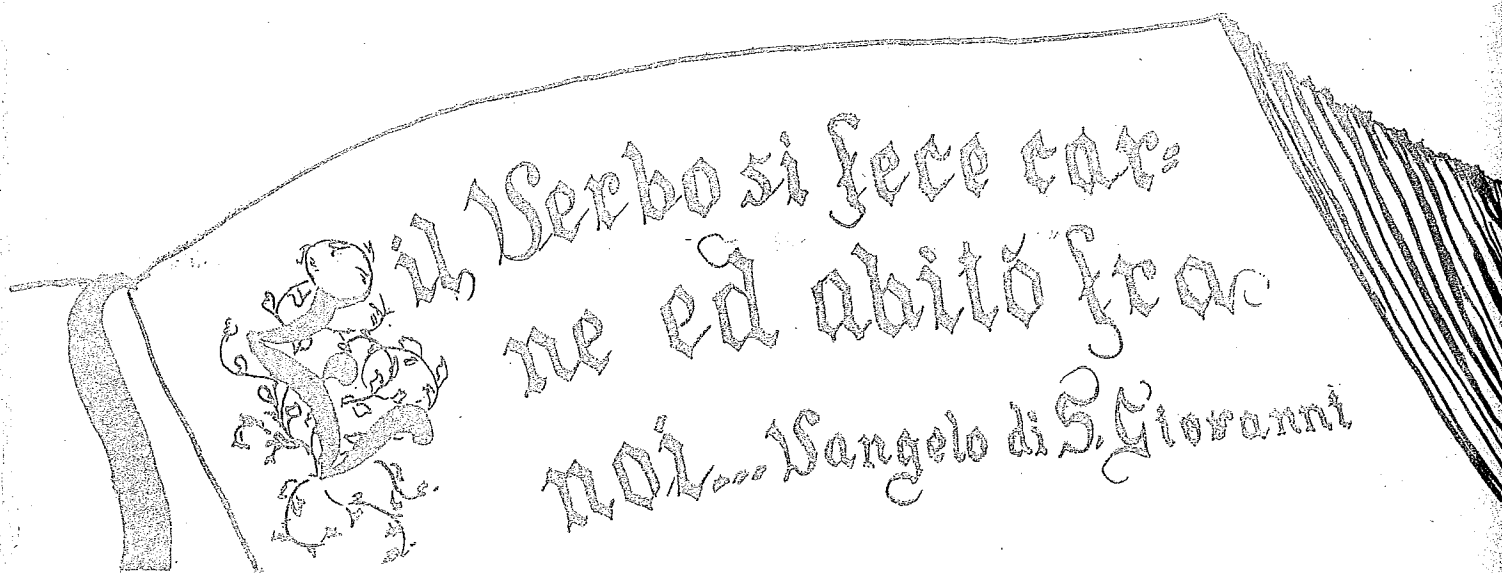 E il Verbo si fece car=
ne ed abitò fra
noi... Vangelo di S. Giovanni